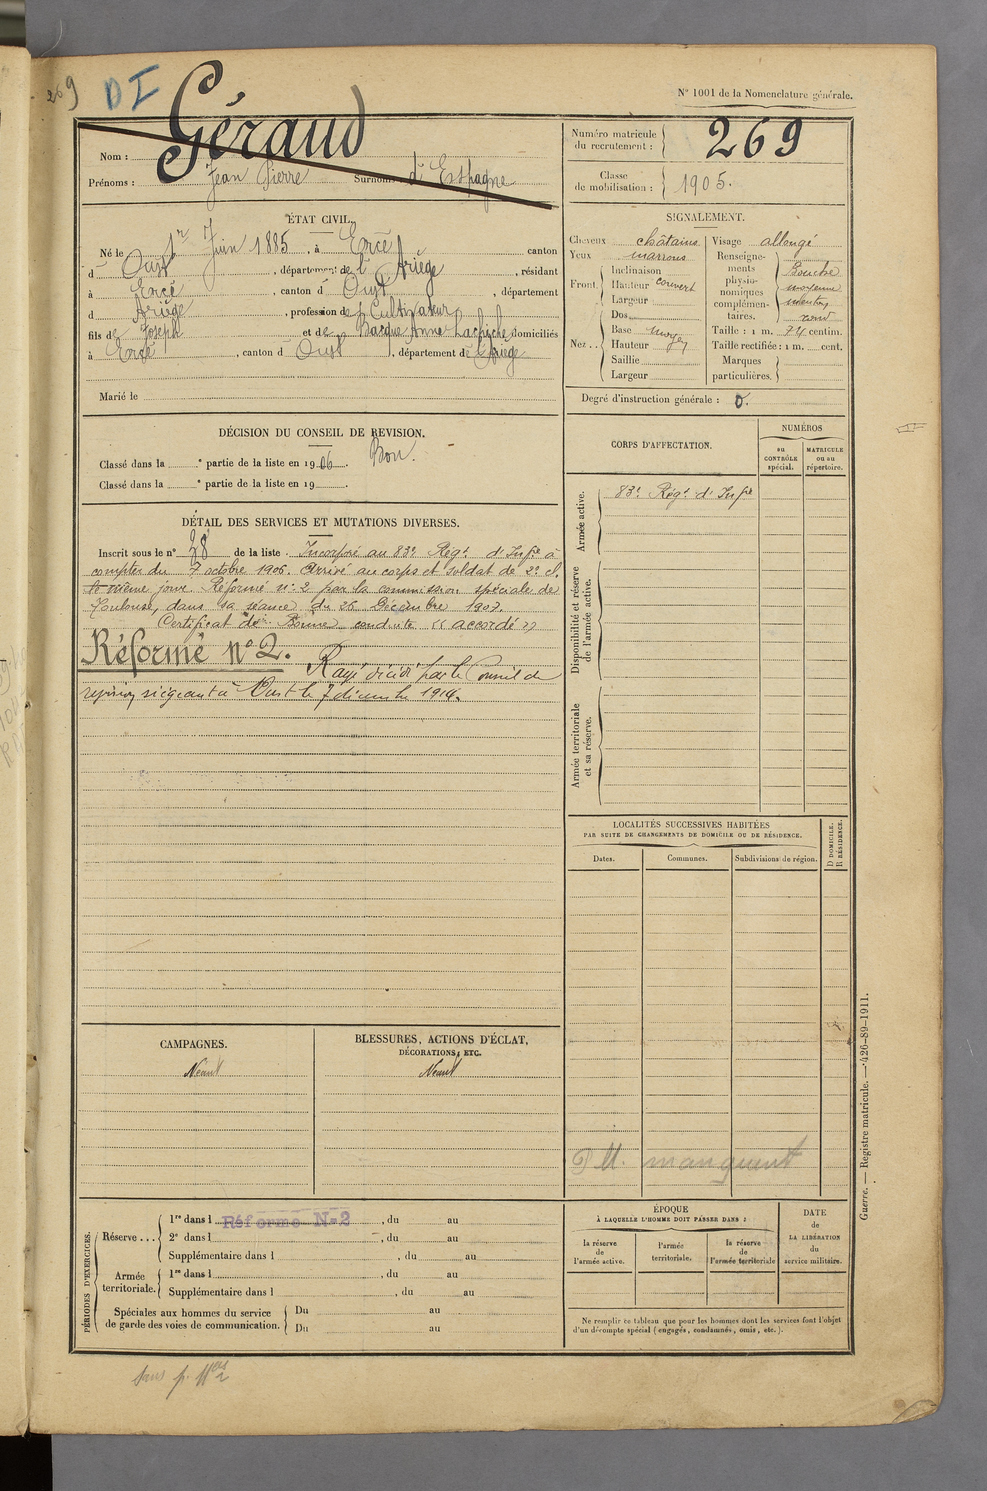 269
D I
N° 1001 de la Nomenclature générale.
Nom : Géraud
Prénoms : Jean Pierre Surnoms : d'Espagne
Numéro matricule du recrutement : 269
Classe de mobilisation : 1905.
ÉTAT CIVIL.
Né le 1er Juin 1885, à Ercé canton
d Oust, département de l'Ariège, résidant
à Ercé, canton d Oust, département
d Ariège, profession de Cultivateur
fils de Joseph et de Bacque Anne domiciliés
à Ercé, canton d Oust, département de l'Ariège
Marié le
SIGNALEMENT.
Cheveux châtains
Yeux marrons
Front
Inclinaison
Hauteur couvert
Largeur
Nez
Dos
Base moyen
Hauteur
Saillie
Largeur
Visage allongé
Renseignements physionomiques complémentaires. Bouche moyenne menton rond
Taille : 1 m. 74 centim.
Taille rectifiée : 1 m. cent.
Marques particulières.
Degré d'instruction générale : 0.
DÉCISION DU CONSEIL DE REVISION.
Bon.
Classé dans la e partie de la liste en 1906.
Classé dans la e partie de la liste en 19 .
DÉTAIL DES SERVICES ET MUTATIONS DIVERSES.
Inscrit sous le n° 28 de la liste. Incorporé au 83e Régt d'Infie à
compter du 7 octobre 1906. Arrivé au corps et soldat de 2e cl.
le même jour. Réformé n° 2 par la commission spéciale de
Toulouse, dans sa séance du 26 Décembre 1907.
Certificat de Bonne conduite "accordé"
Réformé n° 2. Rayé décidé par le Conseil de
révision siégeant à Oust le 7 décembre 1914.
CORPS D'AFFECTATION.
NUMÉROS
au CONTRÔLE spécial.
MATRICULE ou au répertoire.
Armée active.
83e Régt d'Infie
Disponibilité et réserve de l'armée active.
Armée territoriale et sa réserve.
LOCALITÉS SUCCESSIVES HABITÉES
PAR SUITE DE CHANGEMENTS DE DOMICILE OU DE RÉSIDENCE.
Dates.
Communes.
Subdivisions de région.
D DOMICILE.
R RÉSIDENCE.
manquent
CAMPAGNES.
Néant
BLESSURES, ACTIONS D'ÉCLAT,
DÉCORATIONS, ETC.
Néant
PÉRIODES D'EXERCICES.
Réserve ...
1re dans l Réformé N°2, du au
2e dans l , du au
Supplémentaire dans l , du au
Armée territoriale.
1re dans l , du au
Supplémentaire dans l , du au
Spéciales aux hommes du service
de garde des voies de communication.
Du au
Du au
ÉPOQUE
À LAQUELLE L'HOMME DOIT PASSER DANS :
la réserve de l'armée active.
l'armée territoriale.
la réserve de l'armée territoriale
DATE de LA LIBÉRATION du service militaire.
Ne remplir ce tableau que pour les hommes dont les services font l'objet
d'un décompte spécial (engagés, condamnés, omis, etc.).
Guerre. — Registre matricule. — 426-89-1911.